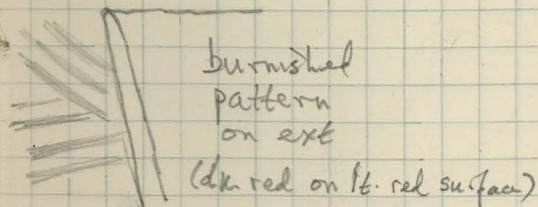 burnished
pattern
on ext
(dk. red on lt. red surface)